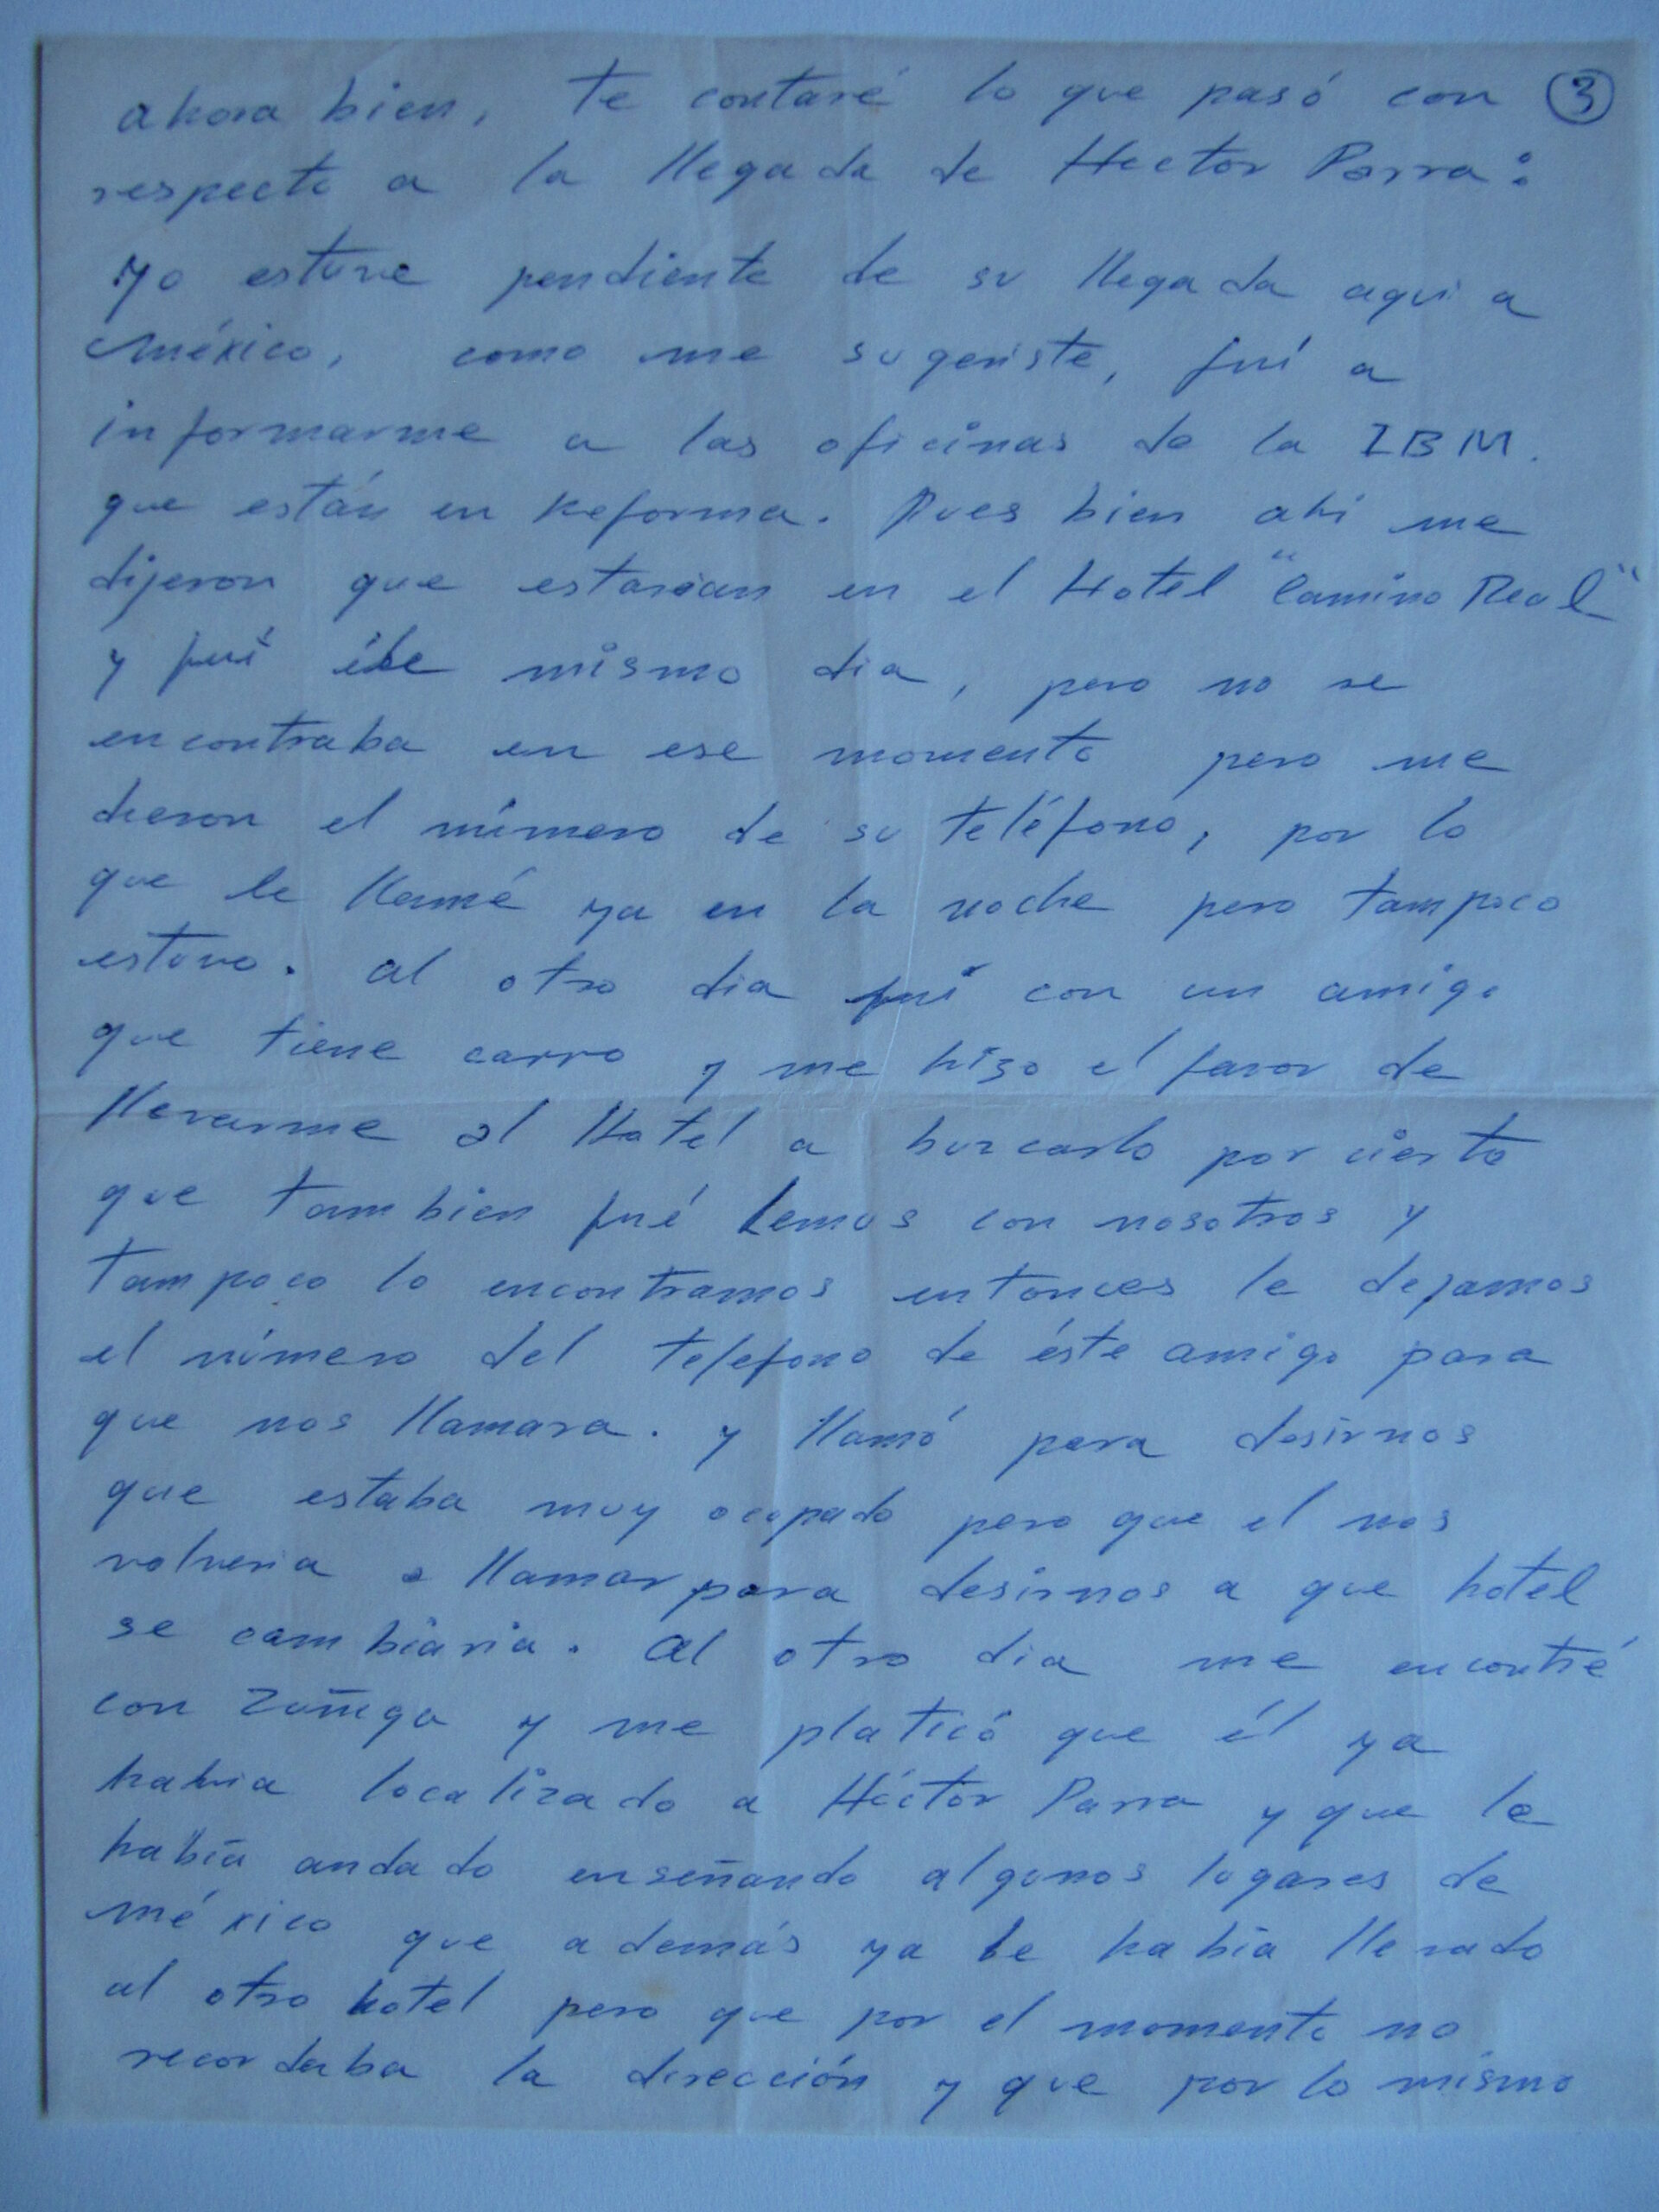 ahora bien, te contaré lo que pasó con ③
respecto a la llegada de Hector Parra:
yo estuve pendiente de su llegada aqui a
México, como me sugeriste, fuí a
informarme a las oficinas de la IBM.
que están en Reforma. Pues bien ahi me
dijeron que estarian en el Hotel "Camino Real"
y fuí ése mismo dia, pero no se
encontraba en ese momento pero me
dieron el número de su teléfono, por lo
que le llamé ya en la noche pero tampoco
estuvo. al otro dia fuí con un amigo
que tiene carro y me hizo el favor de
llevarme al Hotel a buzcarlo por cierto
que tambien fué Lemus con nosotros y
tampoco lo encontramos entonces le dejamos
el número del telefono de éste amigo para
que nos llamara. y llamó para desirnos
que estaba muy ocupado pero que el nos
volveria a llamar para desirnos a que hotel
se cambiaria. al otro dia me encontré
con Zuñiga y me platicó que él ya
habia localizado a Héctor Parra y que le
había andado enseñando algunos lugares de
méxico que además ya le habia llevado
al otro hotel pero que por el momento no
recordaba la dirección y que por lo mismo